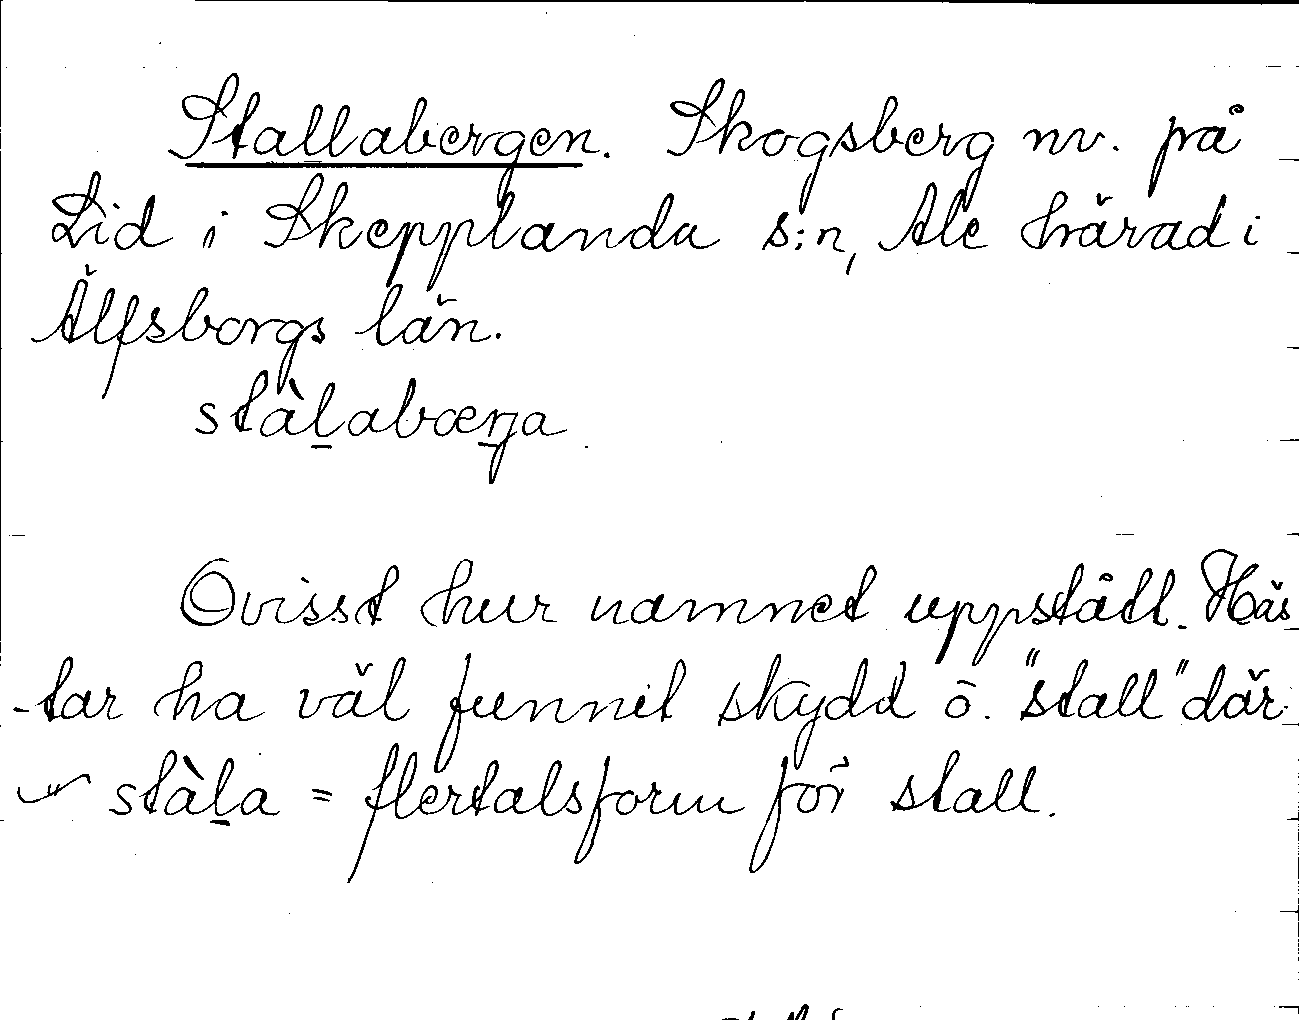 Stallabergen. Skogsberg nv. på
Lid i Skepplanda s:n, Ale härad i
Älfsborgs län.
stàl̲abærja
Ovisst hur namnet uppstått. Häs
-tar ha väl funnit skydd o. "stall" där
stàl̲a = flertalsform för stall.